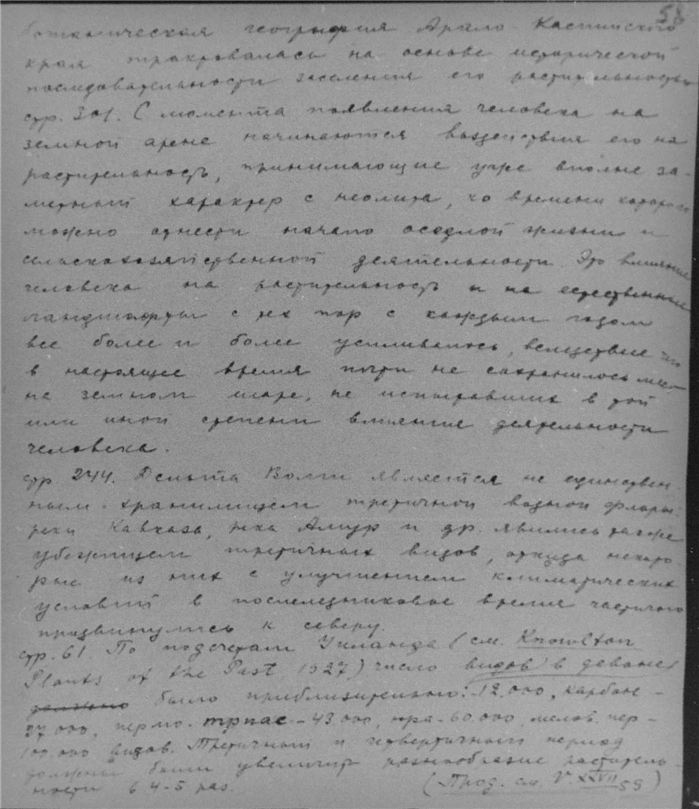 58
ботаническая география Арало-Каспийского
края трактовалась на основе исторической
последовательности заселения его растительностью
стр. 301. С момента появления человека на
земной арене начинаются воздействия его на
растительность, принимающие уже вполне за-
метный характер с неолита, ко времени которого
можно отнести начало оседлой жизни и
сельскохозяйственной деятельности. Это влияние
человека на растительность и на естественные
ландшафты с тех пор с каждым годом
все более и более усиливалось, вследствие чего
в настоящее время почти не сохранилось мест
на земном шаре, не испытавших в той
или иной степени влияние деятельности
человека.
стр 244. Дельта Волги является не единствен-
ным хранилищем третичной водной флоры,
реки Кавказа, река Амур и др. явились также
убежищем третичных видов, откуда некото-
рые из них с улучшением климатических
условий в послеледниковое время частично
продвинулись к северу.
стр. 61. По подсчетам (см. Knowlton
Plants of the Past, 1927) число видов в девоне
было приблизительно: 12.000, карбоне -
27.000, пермо-триас - 43.000, юра - 60.000, мелов. пер -
100.000 видов. Третичный и четвертичный период
должны были увеличить разнообразие раститель-
ности в 4-5 раз. (Прод. см. V. XXVII 59)